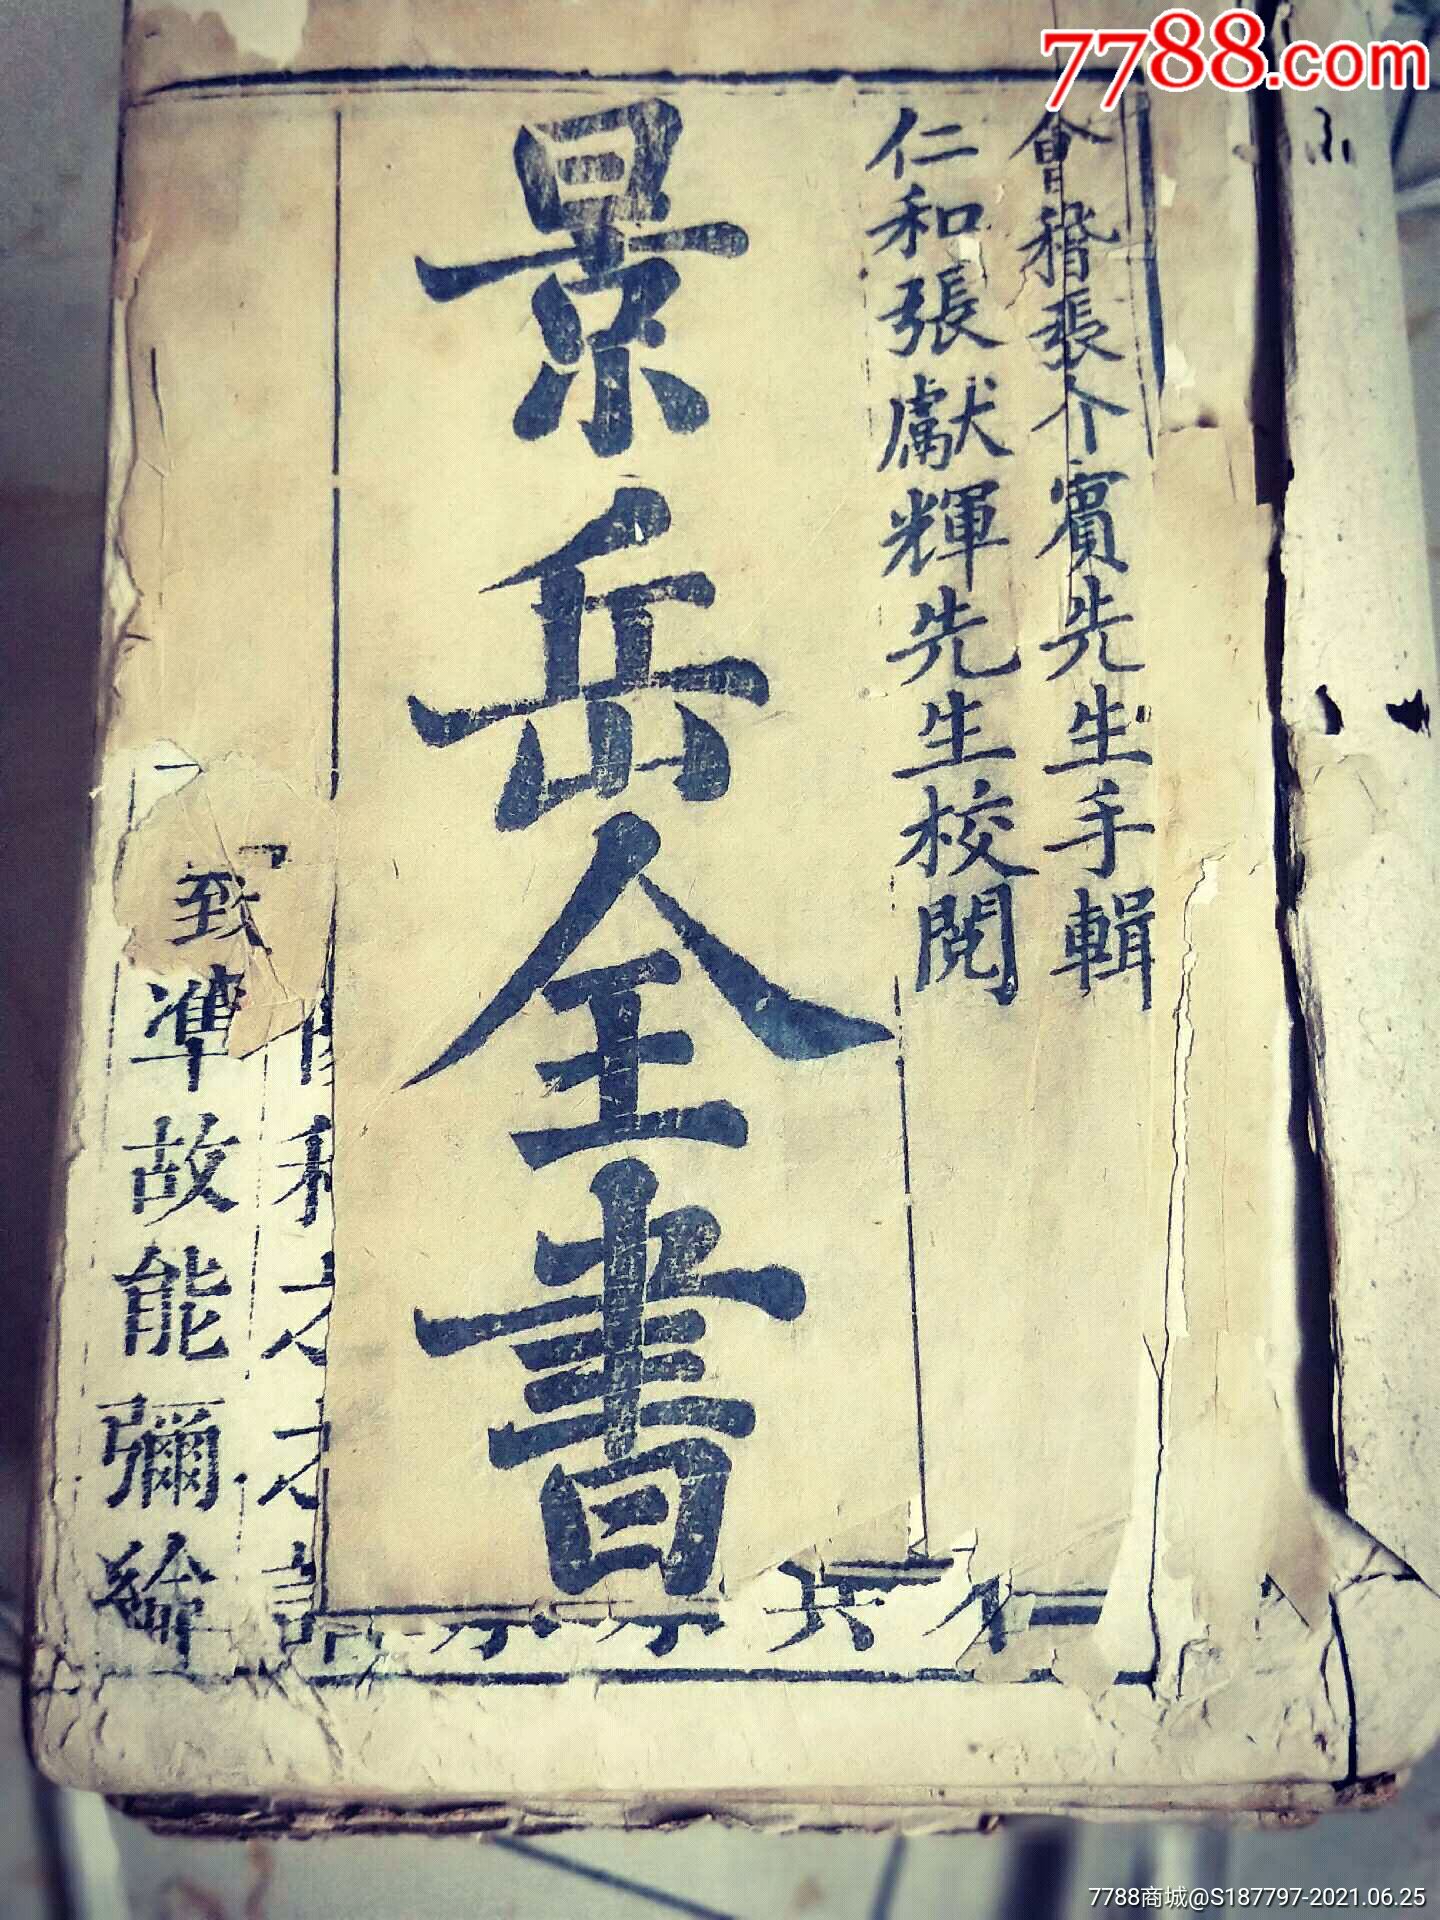 7788.com
會稽張介賓先生手輯
仁和張獻輝先生校閱
景岳全書
致準故能彌綸
7788商城@S187797-2021.06.25